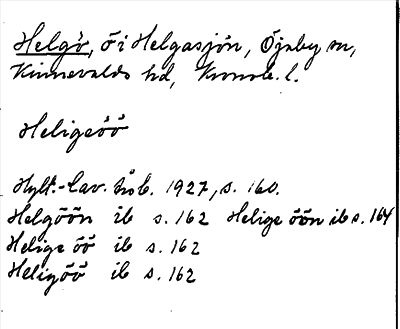 Helgö, ö i Helgasjön, Öjaby sn,
Kinnevalds hd, Kronob. l.
Heligeöö
Hylt.-Cav. årsb. 1927, s. 160.
Helgöön ib s. 162 Helige öön ib s. 164
Helige öö ib s. 162
Heligöö ib s. 162